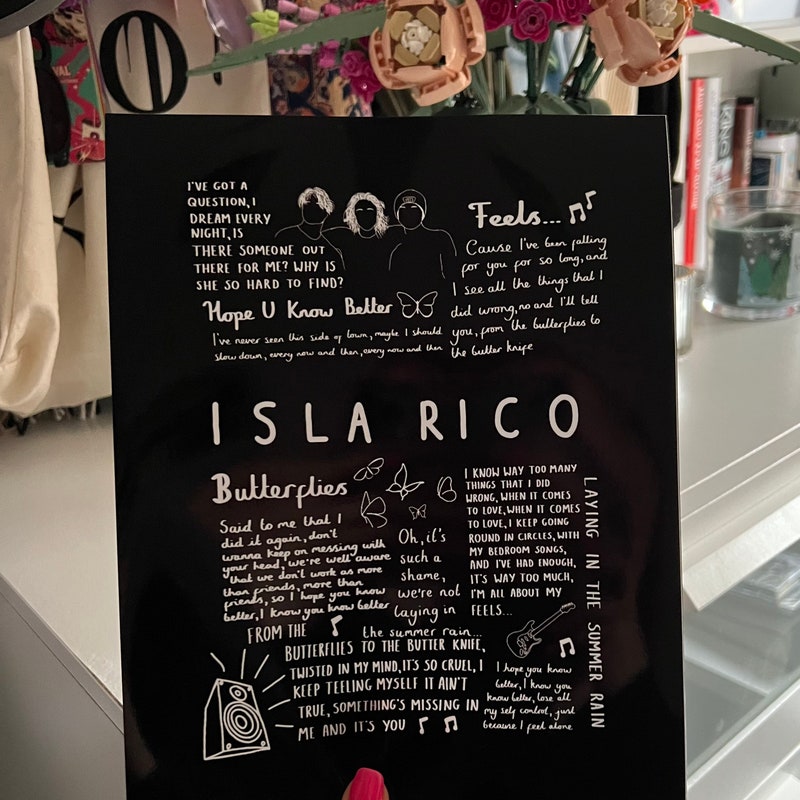 I'VE GOT A
QUESTION, I
DREAM EVERY
NIGHT, IS
THERE SOMEONE OUT
THERE FOR ME? WHY IS
SHE SO HARD TO FIND?
Hope U Know Better
I've never seen this side of town, maybe I should
slow down, every now and then, every now and then
Feels...
Cause I've been falling
for you for so long, and
I see all the things that I
did wrong, no and I'll tell
you, from the butterflies to
the butter knife
ISLA RICO
Butterflies
Said to me that I
did it again, don't
wanna keep on messing with
your head, we're well aware
that we don't work as more
than friends, more than
friends, so I hope you know
better, I know you know better
Oh, it's
such a
shame,
we're not
laying in
the summer rain...
I KNOW WAY TOO MANY
THINGS THAT I DID
WRONG, WHEN IT COMES
TO LOVE, WHEN IT COMES
TO LOVE, I KEEP GOING
ROUND IN CIRCLES, WITH
MY BEDROOM SONGS,
AND I'VE HAD ENOUGH,
IT'S WAY TOO MUCH,
I'M ALL ABOUT MY
FEELS...
LAYING IN THE SUMMER RAIN
FROM THE
BUTTERFLIES TO THE BUTTER KNIFE,
TWISTED IN MY MIND, IT'S SO CRUEL, I
KEEP TEELING MYSELF IT AIN'T
TRUE, SOMETHING'S MISSING IN
ME AND IT'S YOU
I hope you know
better, I know you
know better, lose all
my self control, just
because I feel alone